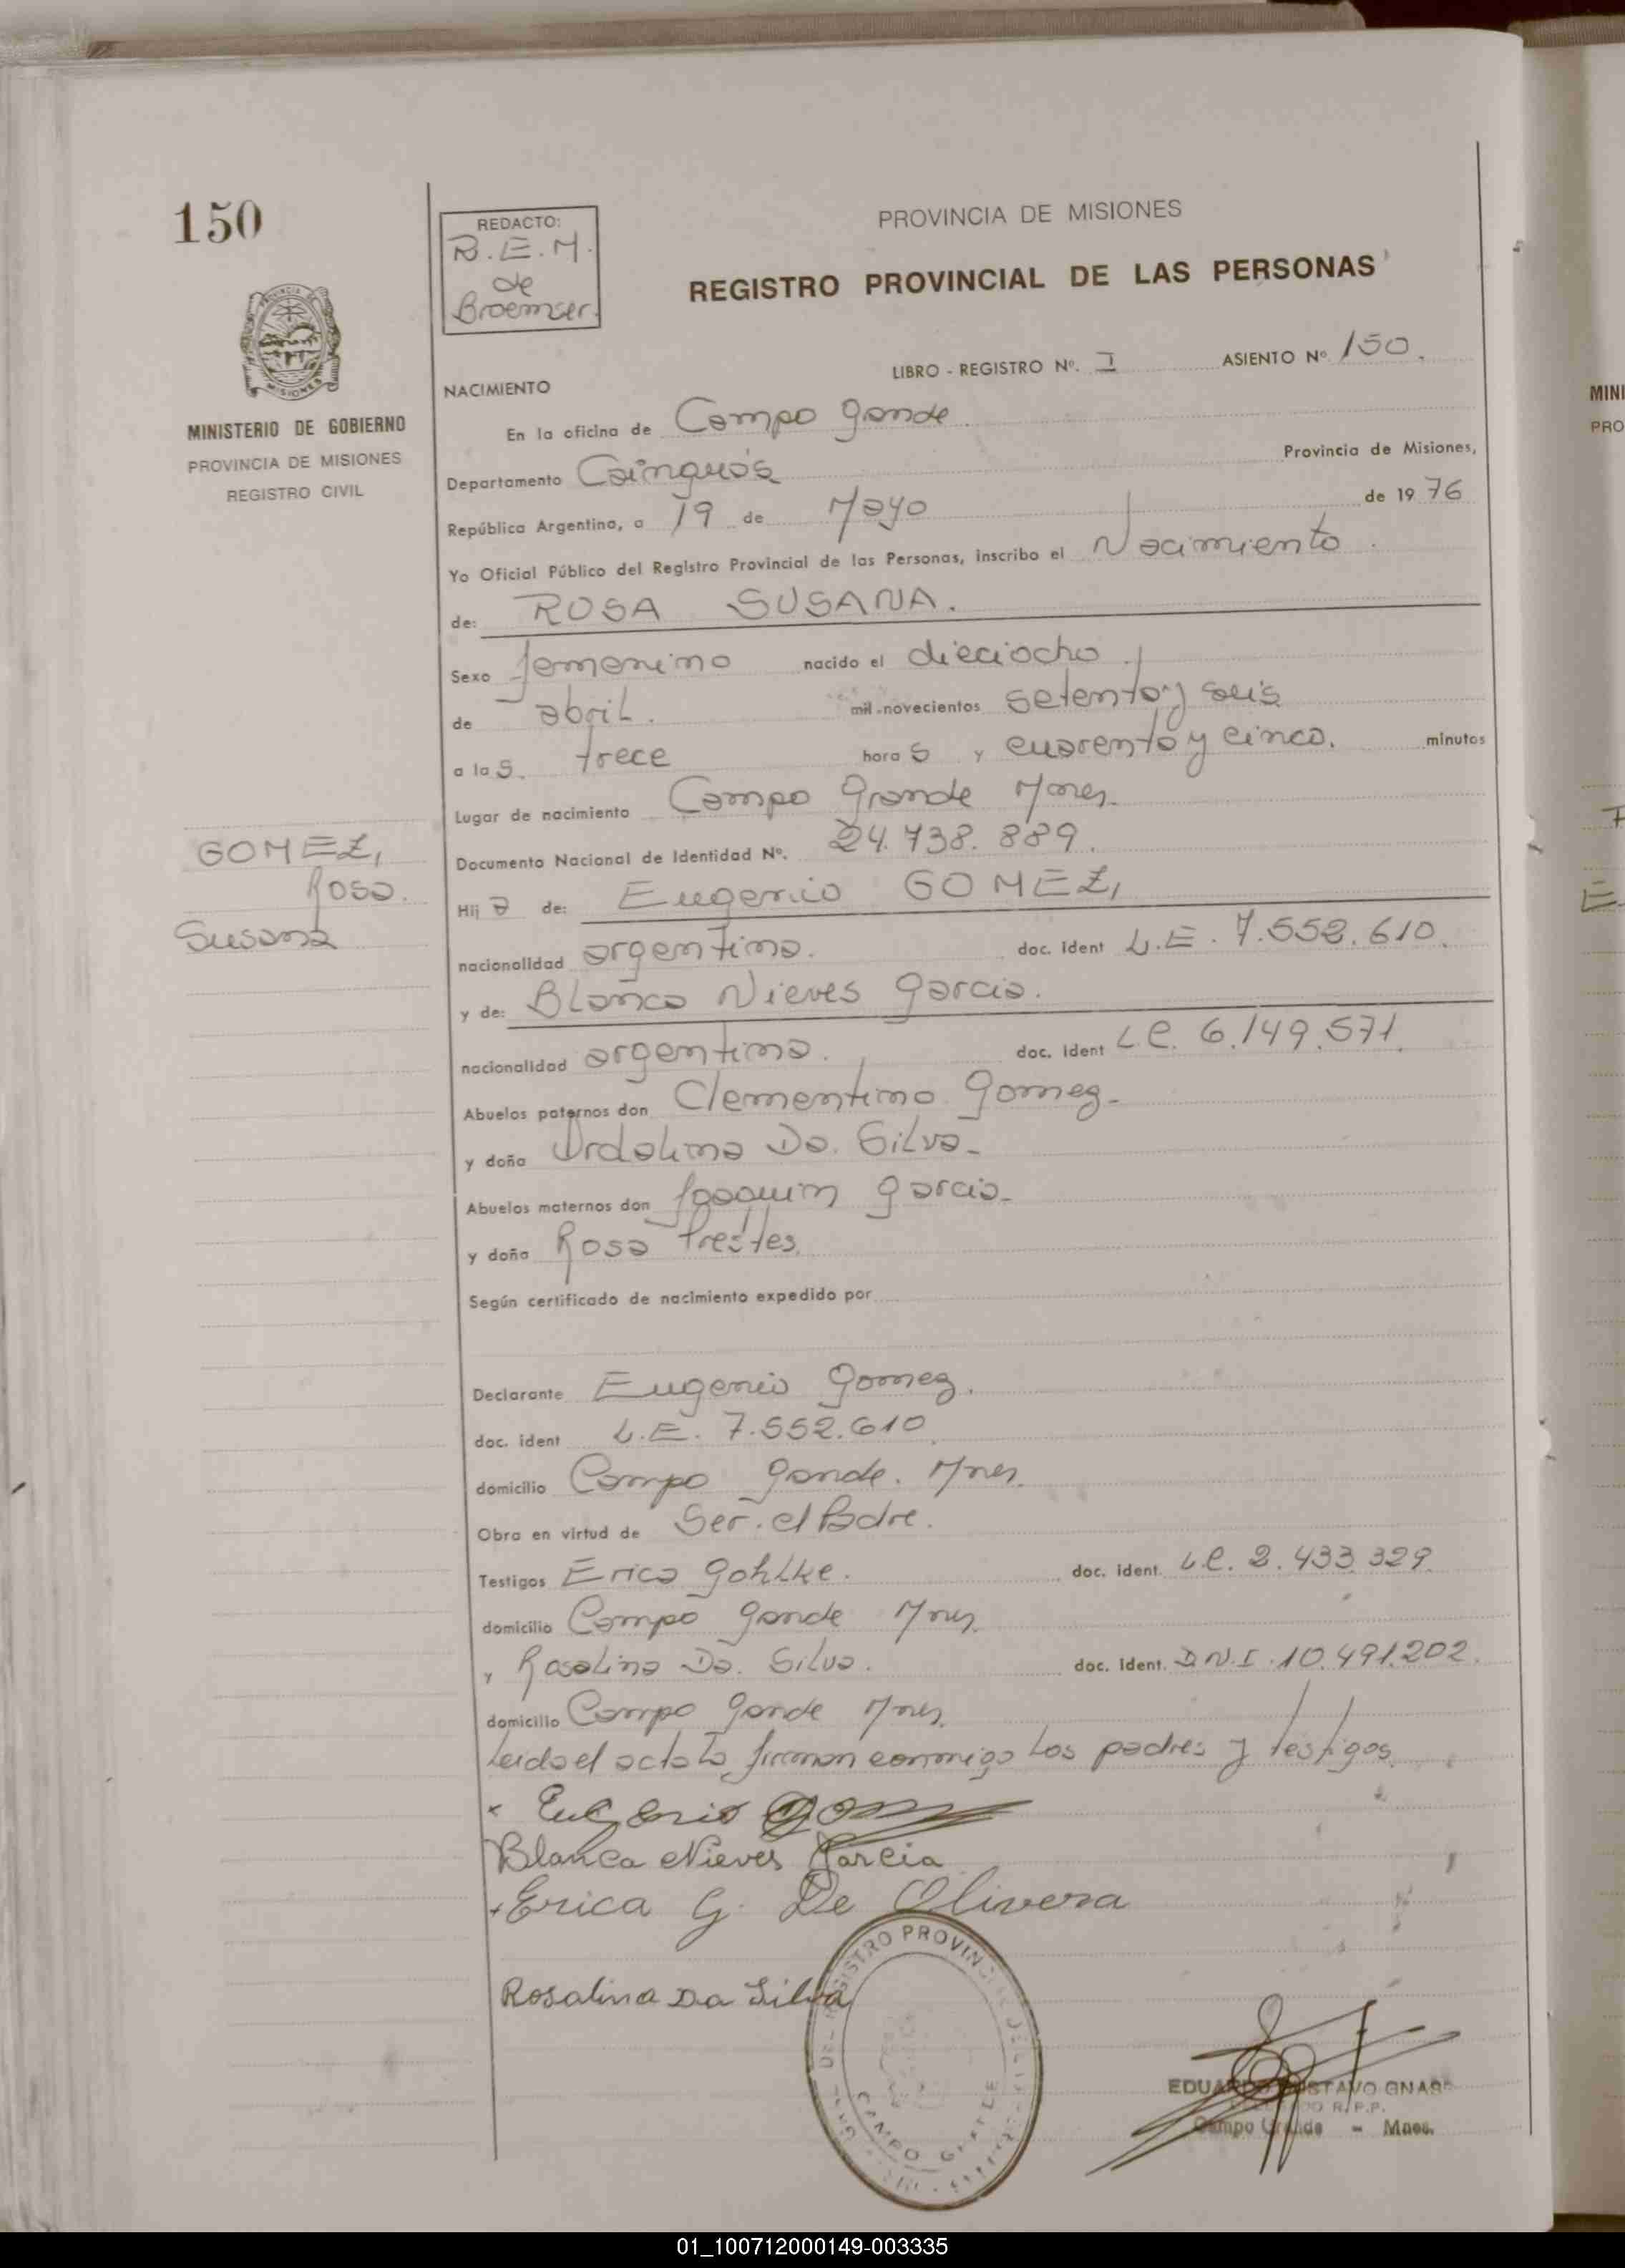 150
REDACTO:
R.E.M.
de
Broemser.
PROVINCIA DE MISIONES
REGISTRO PROVINCIAL DE LAS PERSONAS
MINISTERIO DE GOBIERNO
PROVINCIA DE MISIONES
REGISTRO CIVIL
LIBRO - REGISTRO Nº. I ASIENTO Nº 150.
NACIMIENTO
En la oficina de Campo Gande.
Departamento Cainguás Provincia de Misiones,
República Argentina, a 19 de Mayo de 1976
Yo Oficial Público del Registro Provincial de las Personas, inscribo el Nacimiento.
de: ROSA SUSANA.
Sexo femenino nacido el dieciocho
de abril. mil novecientos setenta y seis
a las. trece horas y cuarenta y cinco. minutos
Lugar de nacimiento Campo Grande Mnes.
Documento Nacional de Identidad Nº. 24.738.889.
GOMEZ,
Rosa.
Susana
Hija de: Eugenio GOMEZ,
nacionalidad argentina. doc. Ident L.E. 7.552.610.
y de: Blanca Nieves Garcia.
nacionalidad argentina. doc. Ident L.C. 6.149.571.
Abuelos paternos don Clementino Gomez-
y doña Ordalina Da. Silva-
Abuelos maternos don Joaquin Garcia-
y doña Rosa Prestes.
Según certificado de nacimiento expedido por
Declarante Eugenio Gomez.
doc. ident L.E. 7.552.610.
domicilio Campo Gande. Mnes.
Obra en virtud de Ser. el Padre.
Testigos Erica Gohlke. doc. ident. L.C. 2.433.329.
domicilio Campo Gande Mnes.
y Rosalina Da. Silva. doc. Ident. D.N.I. 10.491.202.
domicilio Campo Gande Mnes.
Leida el acta la firman conmigo los padres y testigos.
x Eugenio
Blanca Nieves Garcia
+Erica G. De Olivera
Rosalina Da Silva
REGISTRO PROVINCIAL
CAMPO GRANDE
EDUARDO GUSTAVO GNASS
R.P.P.
Campo Grande - Mnes.
MINI
PRO
01_100712000149-003335